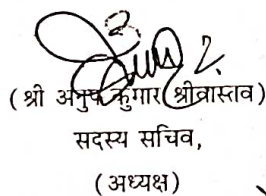 (श्री अनुप कुमार श्रीवास्तव)
सदस्य सचिव,
(अध्यक्ष)